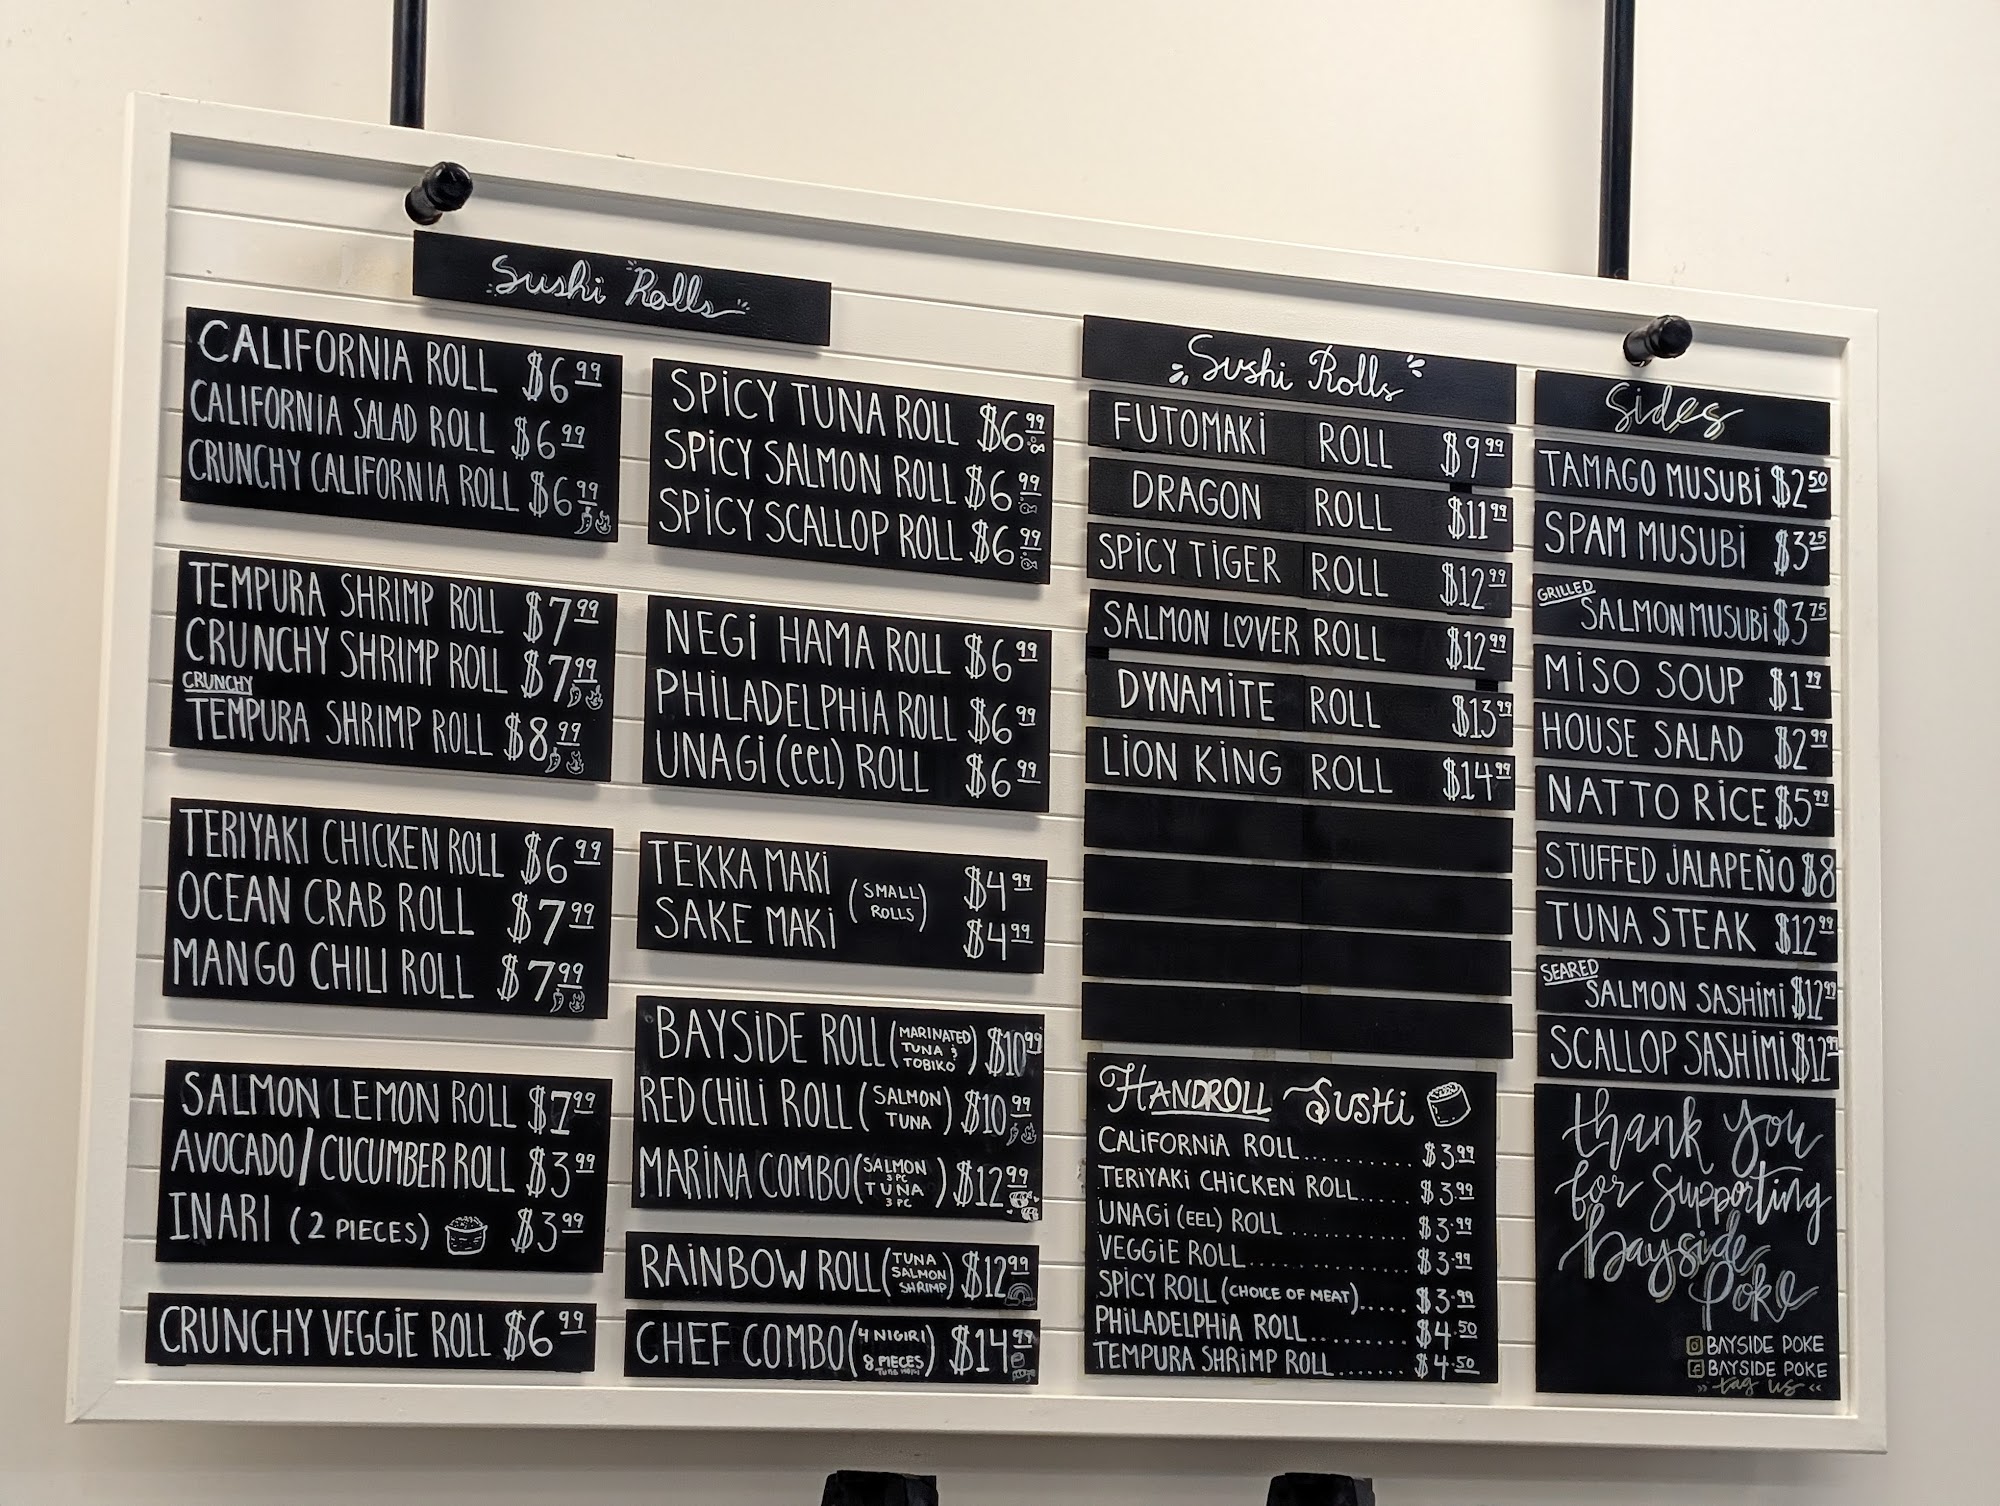 Sushi Rolls
CALIFORNIA ROLL $6.99
CALIFORNIA SALAD ROLL $6.99
CRUNCHY CALIFORNIA ROLL $6.99
TEMPURA SHRIMP ROLL $7.99
CRUNCHY SHRIMP ROLL $7.99
CRUNCHY
TEMPURA SHRIMP ROLL $8.99
TERIYAKI CHICKEN ROLL $6.99
OCEAN CRAB ROLL $7.99
MANGO CHILI ROLL $7.99
SALMON LEMON ROLL $7.99
AVOCADO/CUCUMBER ROLL $3.99
INARI (2 PIECES) $3.99
CRUNCHY VEGGIE ROLL $6.99
SPICY TUNA ROLL $6.99
SPICY SALMON ROLL $6.99
SPICY SCALLOP ROLL $6.99
NEGI HAMA ROLL $6.99
PHILADELPHIA ROLL $6.99
UNAGI (eel) ROLL $6.99
TEKKA MAKI (SMALL ROLLS) $4.99
SAKE MAKI $4.99
BAYSIDE ROLL (MARINATED TUNA & TOBIKO) $10.99
RED CHILI ROLL (SALMON TUNA) $10.99
MARINA COMBO (SALMON 3 PC TUNA 3 PC) $12.99
RAINBOW ROLL (TUNA SALMON SHRIMP) $12.99
CHEF COMBO (4 NIGIRI 8 PIECES TUNA MAKI) $14.99
Sushi Rolls
FUTOMAKI ROLL $9.99
DRAGON ROLL $11.99
SPICY TIGER ROLL $12.99
SALMON LOVER ROLL $12.99
DYNAMITE ROLL $13.99
LION KING ROLL $14.99
HANDROLL SUSHI
CALIFORNIA ROLL.......... $3.99
TERIYAKI CHICKEN ROLL..... $3.99
UNAGI (EEL) ROLL ............ $3.99
VEGGIE ROLL............... $3.99
SPICY ROLL (CHOICE OF MEAT)..... $3.99
PHILADELPHIA ROLL......... $4.50
TEMPURA SHRIMP ROLL....... $4.50
Sides
TAMAGO MUSUBI $2.50
SPAM MUSUBI $3.25
GRILLED
SALMON MUSUBI $3.75
MISO SOUP $1.99
HOUSE SALAD $2.99
NATTO RICE $5.99
STUFFED JALAPEÑO $8
TUNA STEAK $12.99
SEARED
SALMON SASHIMI $12.99
SCALLOP SASHIMI $12.99
Thank you
for supporting
Bayside
Poke
BAYSIDE POKE
BAYSIDE POKE
» tag us «